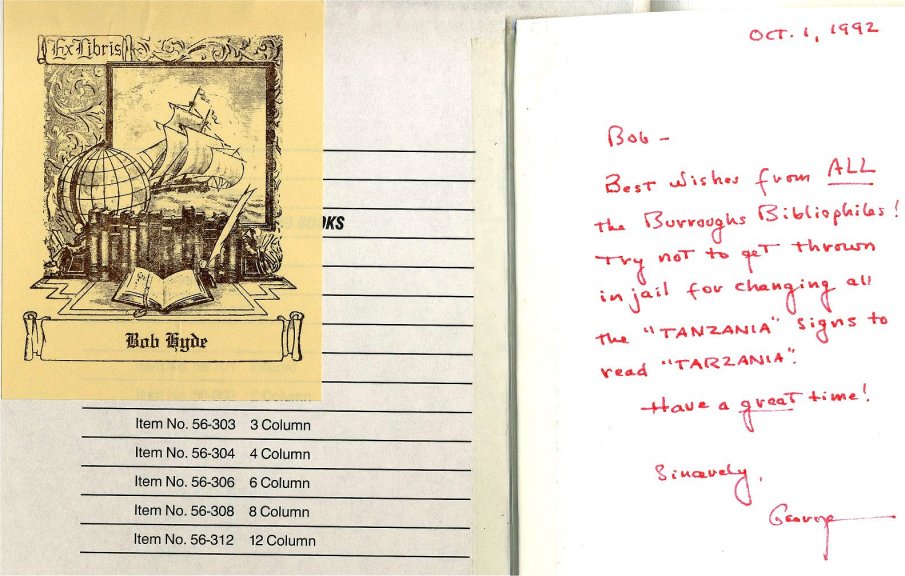 Ex Libris
Bob Hyde
OKS
Item No. 56-303 3 Column
Item No. 56-304 4 Column
Item No. 56-306 6 Column
Item No. 56-308 8 Column
Item No. 56-312 12 Column
OCT. 1, 1992
Bob –
Best Wishes from ALL
the Burroughs Bibliophiles!
Try not to get thrown
in jail for changing all
the "TANZANIA" signs to
read "TARZANIA".
Have a great time!
Sincerely,
George